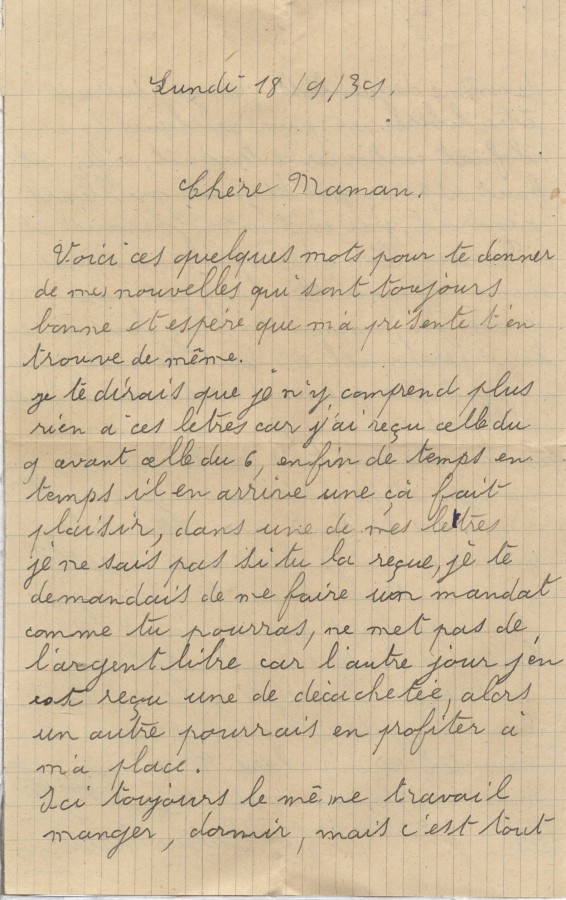 Lundi 18/9/39.
Chère Maman.
Voici ces quelques mots pour te donner
de mes nouvelles qui sont toujours
bonne et espère que m'a présente t'en
trouve de même.
je te dirais que je n'y comprend plus
rien a ces letres car j'ai reçu celle du
9 avant celle du 6, enfin de temps en
temps il en arrive une çà fait
plaisir, dans une de mes letres
je ne sais pas si tu la reçue, je te
demandais de me faire un mandat
comme tu pourras, ne met pas de
l'argent libre car l'autre jour j'en
reçu une de décachetée, alors
un autre pourrais en profiter à
m'a place.
Ici toujours le même travail
manger, dormir, mais c'est tout